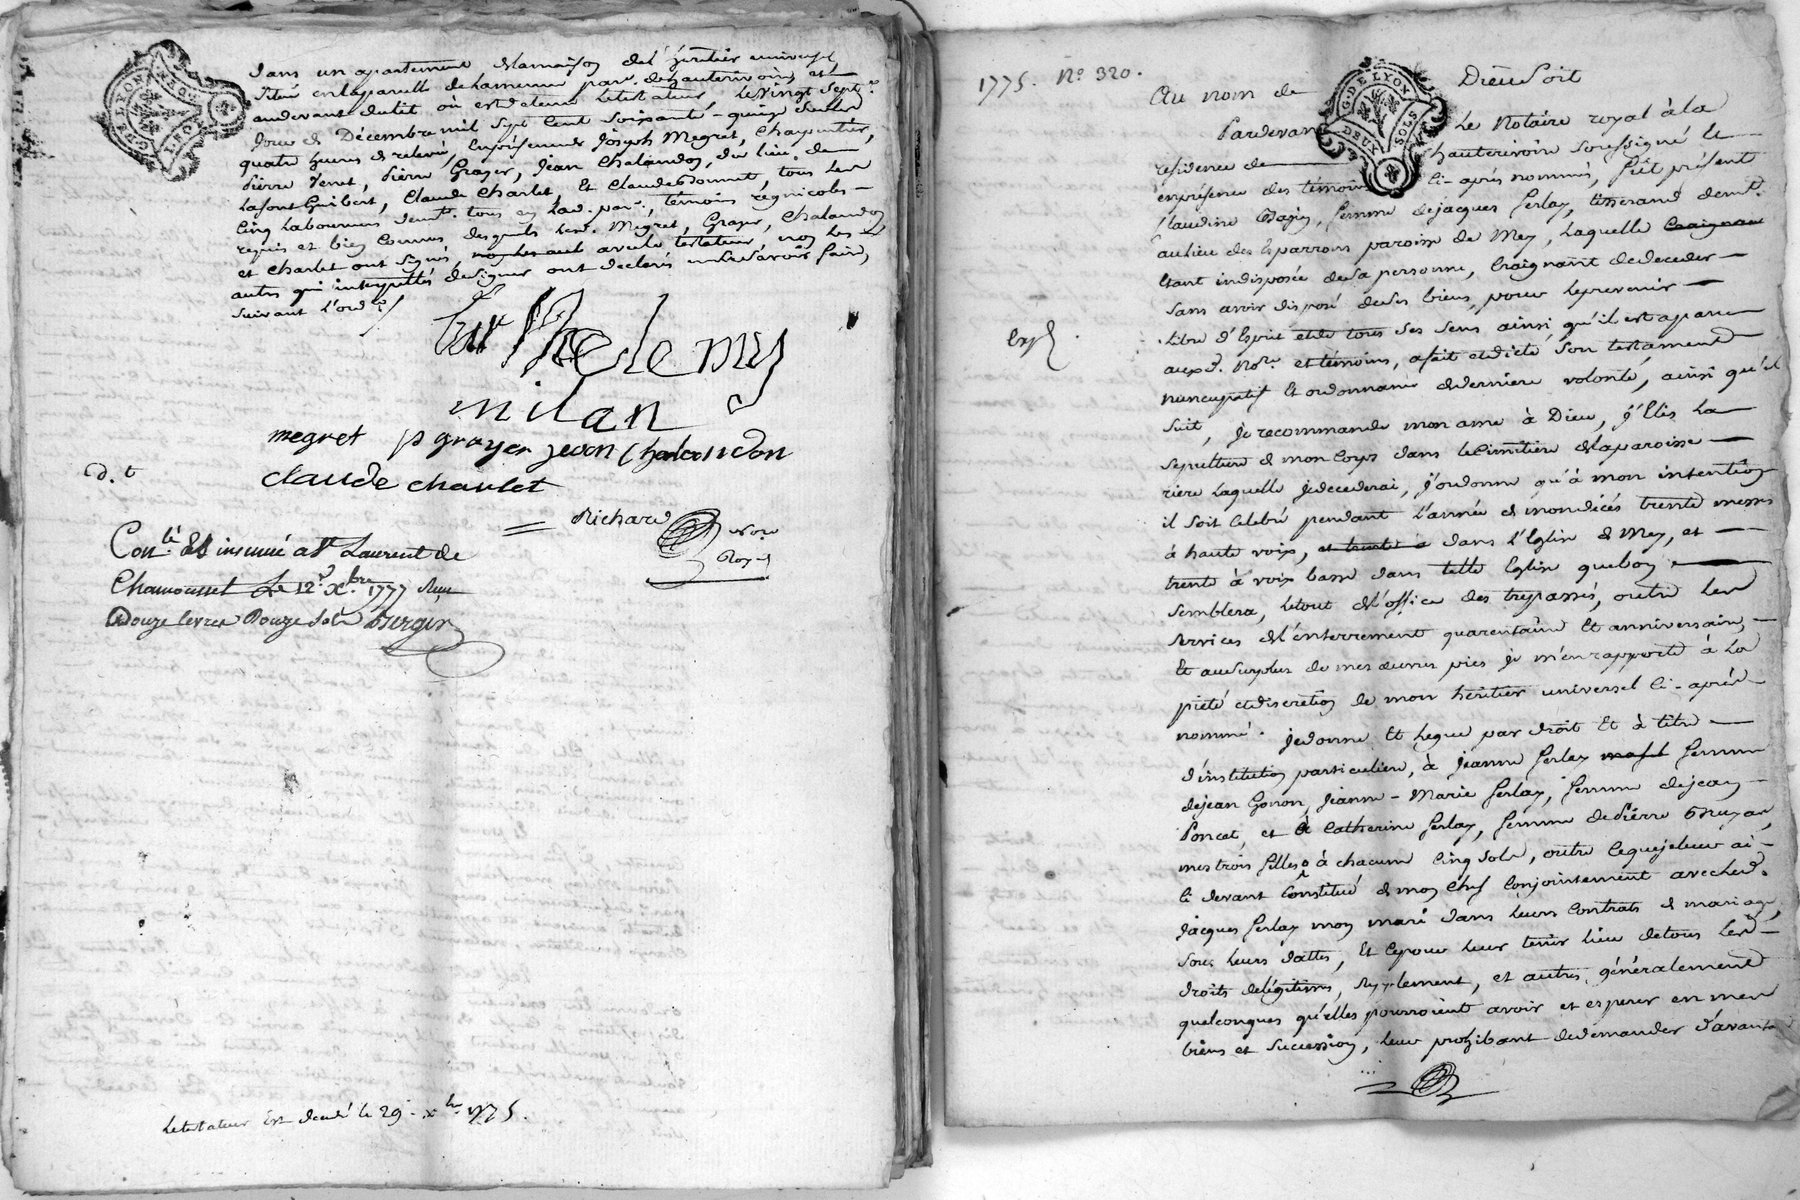 dans un apartement de la maison de l'héritier universel,
situé en la parcelle de Lamenue par. de hauterivoire et
audevant du lit où est detenu le testateur, le vingt sept.e
jour de Décembre mil sept cent soixante-quinze sur les
quatre heures de relevé, en présence de Joseph Megret, Charpentier,
pierre Venet, pierre Grayer, Jean Chalandon, du lieu de
Lafont Guibert, Claude Charlet, et Claude Bonnet, tous les
cinq Laboureurs dem.t tous en lad. par., témoins regnicoles
requis et bien connus desquels lesd. Megret, Grayer, Chalandon
et Charlet ont signés, avec le testateur, non les
autres qui interpellés de signer ont declarés ne le savoir faire,
suivant l'ord.e /
barthelemy
milan
megret p grayer jean Chalandon
claude charlet
d.t
Richard No.re
Royal
Con.lé Et insinué a St Laurent de
Chamousset Le 12.e Xbre 1777 Reçu
Douze livres Douze sols Berger
Le testateur Est decedé le 29 Xbre 1775.
1775. No. 320.
Au nom de Dieu Soit
G. DE LYON
DEUX SOLS
Pardevant Le Notaire royal à la
residence de hauterivoire soussigné &
en presence des témoins ci-après nommés, fût présent
Claudine Bagny, femme de jacques ferlay, tisserand dem.t
au lieu des Esparrons paroisse de Mey, laquelle craignant
étant indisposée de sa personne, craignant de deceder
sans avoir disposé de ses biens, pour le prevenir
Libre d'Esprit et de tous ses sens ainsi qu'il est aparu
auxd. No.re et témoins, a fait et dicté son testament
nuncupatif et ordonnance de derniere volonté, ainsi qu'il
suit, je recommande mon ame à Dieu, j'Elis la
sepulture de mon corps dans le cimetiere de la paroisse
riere laquelle je decederai, j'ordonne qu'à mon intention
il soit celebré pendant l'année de mon décés trente messes
à haute voix, et trente à dans l'Eglise de Mey, et
trente à voix basse dans telle Eglise que bon
semblera, le tout de l'office des trepassés, outre les
services de l'enterrement quarentaine et anniversaire,
Et au surplus de mes œuvres pies je m'en rapporte à la
pieté et discretion de mon héritier universel ci-après
nommé. je donne et legue par droit et à titre
d'institution particuliere, à jeanne ferlay femme
de jean Gonon, jeanne-Marie ferlay, femme de jean
Poncet, et à Catherine ferlay, femme de Pierre Gruyer,
mes trois filles à chacune cinq sols, outre ce que je leur ai
ci devant constitué de mon chef conjointement avec led.
jacques ferlay mon mari dans leurs contrats de mariage,
sous leurs dattes, Et ce pour leur tenir lieu de tous les
droits de légitime, suplement, et autres généralement
quelconques qu'elles pourroient avoir et esperer en mes
biens et succession, leur prohibant de demander d'avantage